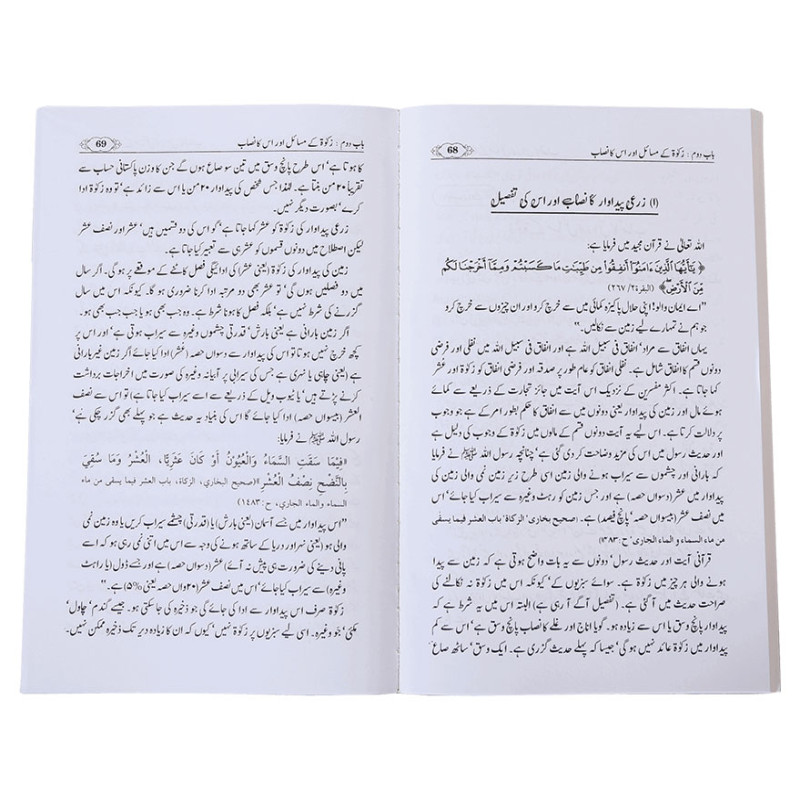 باب دوم : زکوٰۃ کے مسائل اور اس کا نصاب
68
(۱) زرعی پیداوار کا نصاب ہے اور اس کی تفصیل
اللہ تعالیٰ نے قرآن مجید میں فرمایا ہے:
﴿ يَـٰٓأَيُّهَا ٱلَّذِينَ ءَامَنُوٓا۟ أَنفِقُوا۟ مِن طَيِّبَـٰتِ مَا كَسَبْتُمْ وَمِمَّآ أَخْرَجْنَا لَكُم
مِّنَ ٱلْأَرْضِ ﴾ (البقرۃ۲/ ۲۶۷)
”اے ایمان والو! اپنی حلال پاکیزہ کمائی میں سے خرچ کرو اور ان چیزوں سے خرچ کرو
جو ہم نے تمہارے لیے زمین سے نکالیں۔“
یہاں انفاق سے مراد‘ انفاق فی سبیل اللہ ہے اور انفاق فی سبیل اللہ میں نفلی اور فرضی
دونوں قسم کا انفاق شامل ہے۔ نفلی انفاق کو عام طور پر صدقہ اور فرضی انفاق کو زکوٰۃ اور عشر
کہا جاتا ہے۔ اکثر مفسرین کے نزدیک اس آیت میں جائز تجارت کے ذریعے سے کمائے
ہوئے مال اور زمین کی پیداوار یعنی دونوں میں سے انفاق کا حکم بطور امر کے ہے جو وجوب
پر دلالت کرتا ہے۔ اس لیے یہ آیت دونوں قسم کے مالوں میں زکوٰۃ کے وجوب کی دلیل ہے
اور حدیث رسول میں اس کی مزید وضاحت کر دی گئی ہے‘ چنانچہ رسول اللہ ﷺ نے فرمایا
کہ بارانی اور چشموں سے سیراب ہونے والی زمین اسی طرح زیر زمین نمی والی زمین کی
پیداوار میں عشر (دسواں حصہ) ہے اور جس زمین کو رہٹ وغیرہ سے سیراب کیا جائے‘ اس
میں نصف عشر (بیسواں حصہ‘ پانچ فیصد) ہے۔ (صحیح بخاری‘ الزکاۃ‘ باب العشر فیما یسقی
من ماء السماء و الماء الجاری‘ ح:۱۴۸۳)
قرآنی آیت اور حدیث رسول‘ دونوں سے یہ بات واضح ہوتی ہے کہ زمین سے پیدا
ہونے والی ہر چیز میں زکوٰۃ ہے۔ سوائے سبزیوں کے‘ کیونکہ اس میں زکوٰۃ نہ نکالنے کی
صراحت حدیث میں آ گئی ہے۔ (تفصیل آگے آ رہی ہے) البتہ اس میں یہ شرط ہے کہ
پیداوار پانچ وسق یا اس سے زیادہ ہو۔ گویا اناج اور غلے کا نصاب پانچ وسق ہے‘ اس سے کم
پیداوار میں زکوٰۃ عائد نہیں ہو گی‘ جیسا کہ پہلے حدیث گزری ہے۔ ایک وسق‘ ساٹھ صاع
باب دوم : زکوٰۃ کے مسائل اور اس کا نصاب
69
کا ہوتا ہے‘ اس طرح پانچ وسق میں تین سو صاع ہوں گے جن کا وزن پاکستانی حساب سے
تقریباً ۲۰ من بنتا ہے۔ لہٰذا جس شخص کی پیداوار ۲۰ من یا اس سے زائد ہے‘ تو وہ زکوٰۃ ادا
کرے‘ بصورت دیگر نہیں۔
زرعی پیداوار کی زکوٰۃ کو عشر کہا جاتا ہے‘ گو اس کی دو قسمیں ہیں‘ عشر اور نصف عشر
لیکن اصطلاح میں دونوں قسموں کو عشر ہی سے تعبیر کیا جاتا ہے۔
زمین کی پیداوار کی زکوٰۃ (یعنی عشر) کی ادائیگی فصل کاٹنے کے موقعے پر ہو گی۔ اگر سال
میں دو فصلیں ہوں گی‘ تو عشر بھی دو مرتبہ ادا کرنا ضروری ہو گا۔ کیونکہ اس میں سال
گزرنے کی شرط نہیں ہے‘ بلکہ فصل کا ہونا شرط ہے۔ وہ جب بھی ہو یا جب جب بھی ہو۔
اگر زمین بارانی ہے یعنی بارش‘ قدرتی چشموں وغیرہ سے سیراب ہوتی ہے‘ اور اس پر
کچھ خرچ نہیں ہوتا تو اس کی پیداوار سے دسواں حصہ (عشر) ادا کیا جائے اگر زمین غیر بارانی
ہے (یعنی چاہی یا نہری ہے جس کی سیرابی پر آبیانہ وغیرہ کی صورت میں اخراجات برداشت
کرنے پڑتے ہیں‘ یا ٹیوب ویل کے ذریعے سے اسے سیراب کیا جاتا ہے) تو اس سے نصف
العشر (بیسواں حصہ) ادا کیا جائے گا اس کی بنیاد یہ حدیث ہے جو پہلے بھی گزر چکی ہے‘
رسول اللہ ﷺ نے فرمایا:
«فِيمَا سَقَتِ السَّمَاءُ وَالْعُيُونُ أَوْ كَانَ عَثَرِيًّا، الْعُشْرُ وَمَا سُقِيَ
بِالنَّضْحِ نِصْفُ الْعُشْرِ»(صحيح البخاري، الزكاة، باب العشر فيما يسقى من ماء
السماء والماء الجاري، ح:۱٤۸۳)
”اس پیداوار میں جسے آسمان (یعنی بارش) یا (قدرتی) چشمے سیراب کریں یا وہ زمین نمی
والی ہو (یعنی نہر اور دریا کے ساتھ ہونے کی وجہ سے اس میں اتنی نمی رہتی ہو کہ اسے
پانی دینے کی ضرورت ہی پیش نہ آئے) عشر (دسواں حصہ) ہے اور جسے ڈول (یا راہٹ
وغیرہ) سے سیراب کیا جائے‘ اس میں نصف عشر (۲۰واں حصہ یعنی ۵%) ہے۔“
زکوٰۃ صرف اس پیداوار سے ادا کی جائے گی جو ذخیرہ کی جا سکتی ہو۔ جیسے گندم‘ چاول‘
مکئی‘ جو وغیرہ۔ اسی لیے سبزیوں پر زکوٰۃ نہیں‘ کیوں کہ ان کا زیادہ دیر تک ذخیرہ ممکن نہیں۔